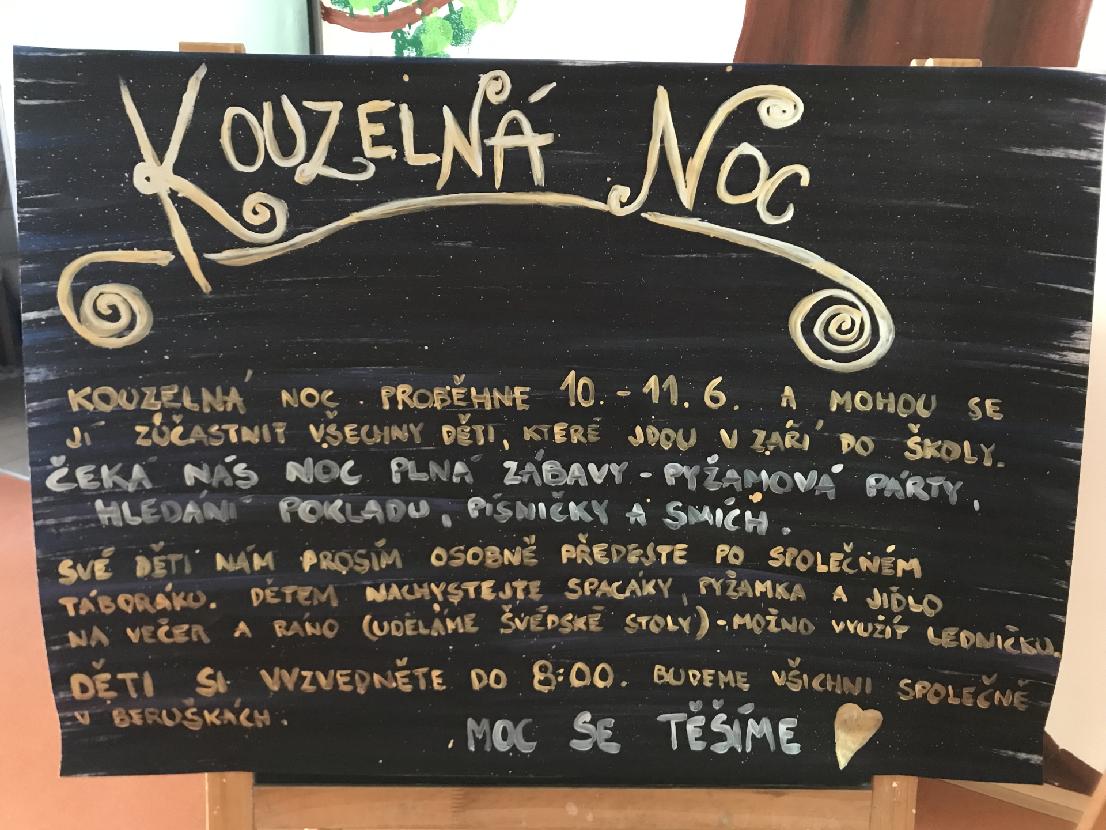 KOUZELNÁ NOC
KOUZELNÁ NOC PROBĚHNE 10. - 11. 6. A MOHOU SE
JÍ ZÚČASTNIT VŠECHNY DĚTI, KTERÉ JDOU V ZÁŘÍ DO ŠKOLY.
ČEKÁ NÁS NOC PLNÁ ZÁBAVY - PYŽAMOVÁ PÁRTY,
HLEDÁNÍ POKLADU, PÍSNIČKY A SMÍCH.
SVÉ DĚTI NÁM PROSÍM OSOBNĚ PŘEDEJTE PO SPOLEČNÉM
TÁBORÁKU. DĚTEM NACHYSTEJTE SPACÁKY, PYŽAMKA A JÍDLO
NA VEČER A RÁNO (UDĚLÁME ŠVÉDSKÉ STOLY) - MOŽNO VYUŽÍT LEDNIČKU.
DĚTI SI VYZVEDNĚTE DO 8:00. BUDEME VŠICHNI SPOLEČNĚ
V BERUŠKÁCH.
MOC SE TĚŠÍME